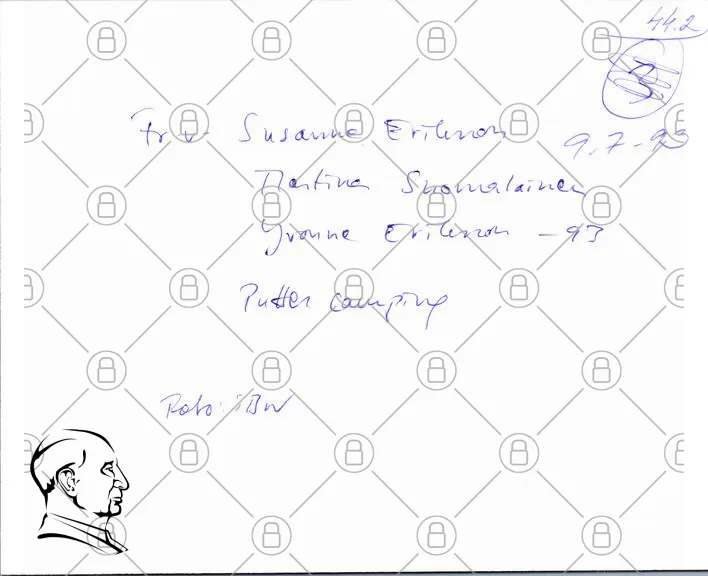 44.2
9.7-93
Fr v Susanne Eriksson
Martina Suomalainen
Yvonne Eriksson -93
Camping
Foto: IBW